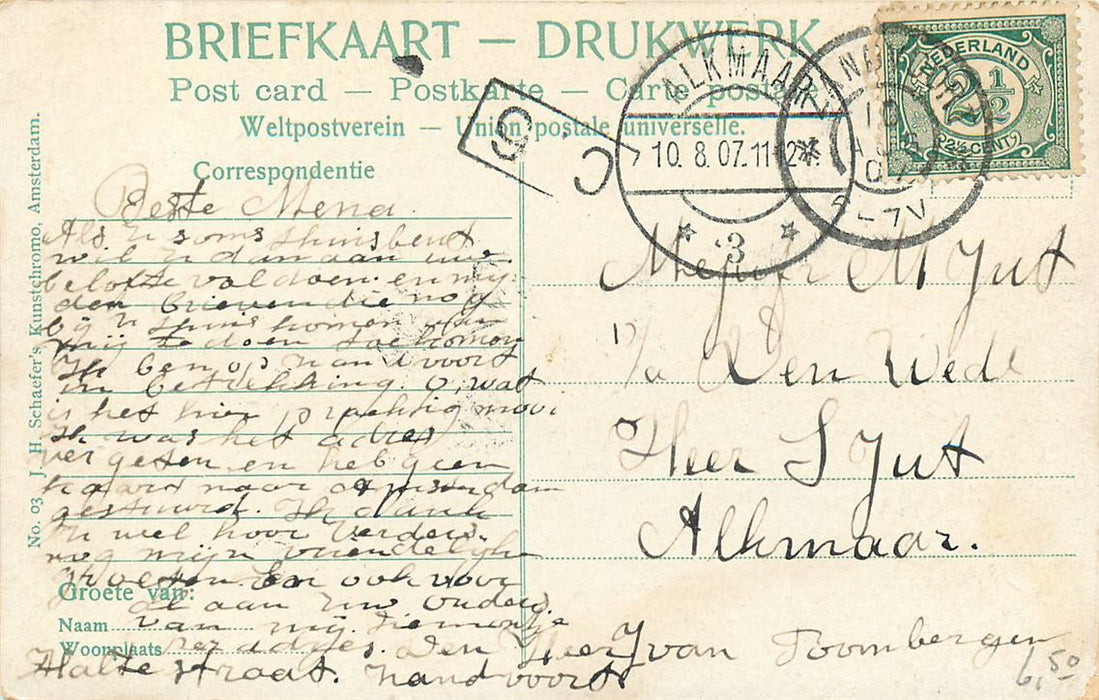 BRIEFKAART — DRUKWERK
Post card — Postkarte — Carte postale
Weltpostverein — Union postale universelle.
Correspondentie
NEDERLAND
2 1/2
2½ CENT
ALKMAAR
10. 8. 07. 11-12
3
10
6-7V
9
C
No. 03. J. H. Schaefer's Kunstchromo, Amsterdam.
Beste Mena
Als U soms thuis bent
wil U dan aan uwe
belofte voldoen en mij
den brieven die nog
bij U thuis komen dan
mij te doen toekomen
Ik ben op Zandvoort
in betrekking. O, wat
is het hier prachtig mooi
Ik was het adres
vergeten en heb geen
kaard naar Amsterdam
gestuurd. Ik dank
U wel hoor verders
nog mijn vriendelijke
groeten en ook voor
al aan Uw Ouders.
van mij
Groete van:
Naam
Woonplaats
den Heer J van Toombergen
Haltestraat. Zandvoort.
Mejuffr M Jut
p/a Den Wed
Heer S Jut
Alkmaar.
6,50